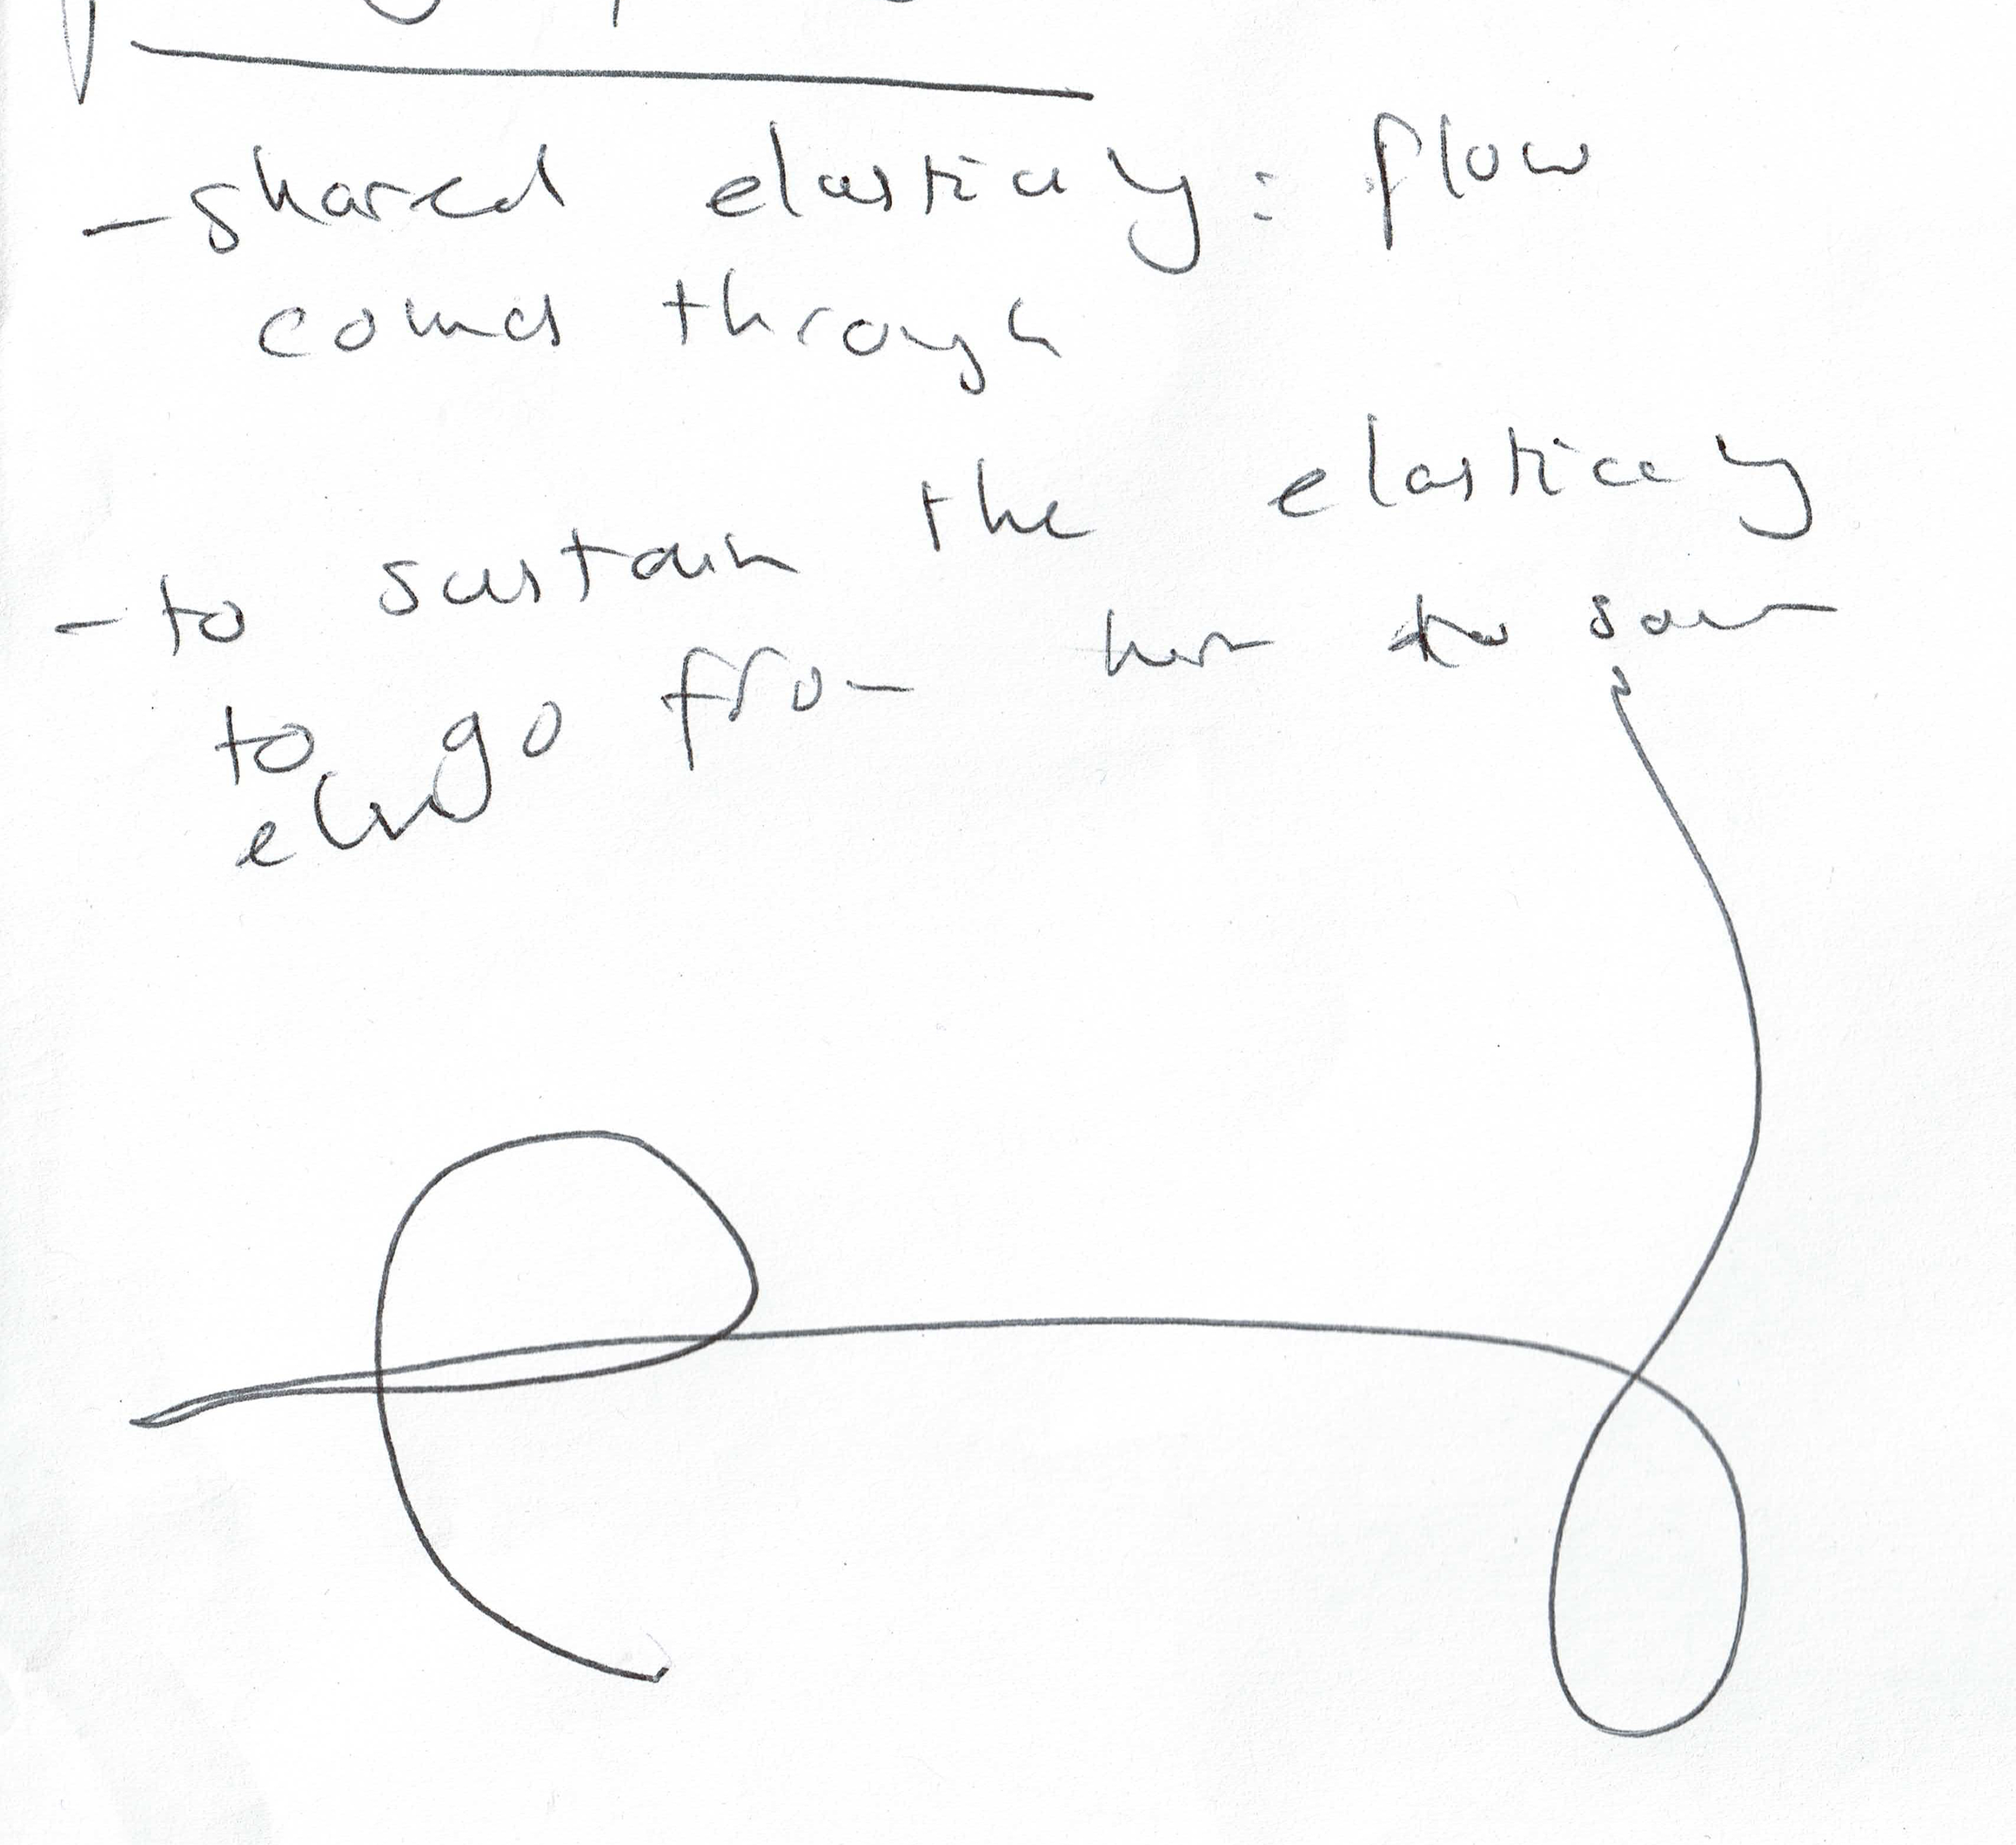 - shared elasticity: flow
comes through
- to sustain the elasticity
to go from here to som
else